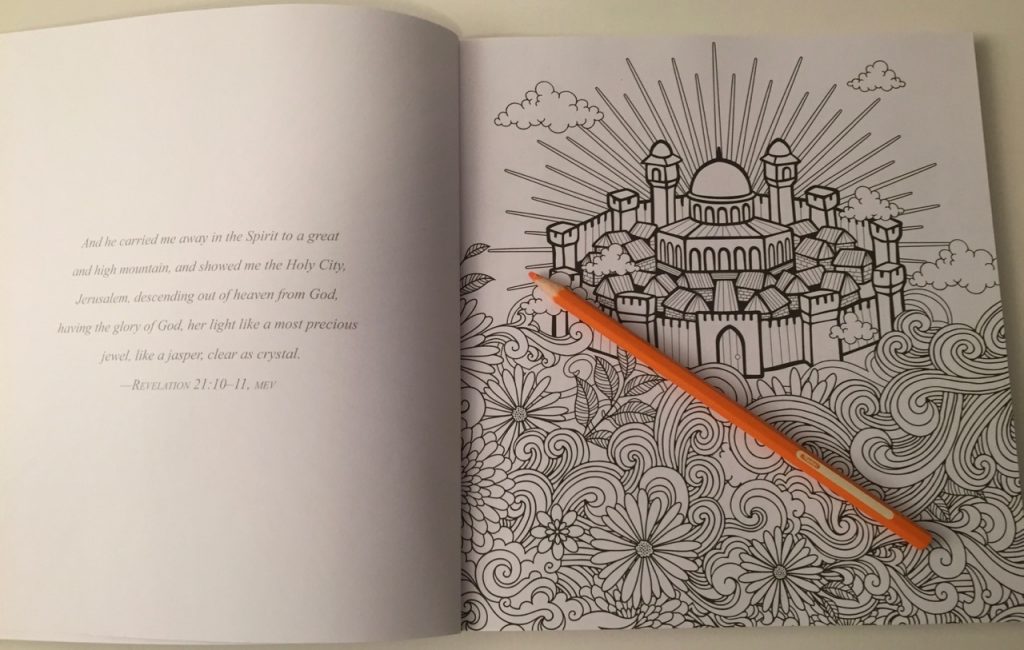 And he carried me away in the Spirit to a great
and high mountain, and showed me the Holy City,
Jerusalem, descending out of heaven from God,
having the glory of God, her light like a most precious
jewel, like a jasper, clear as crystal.
—Revelation 21:10–11, mev